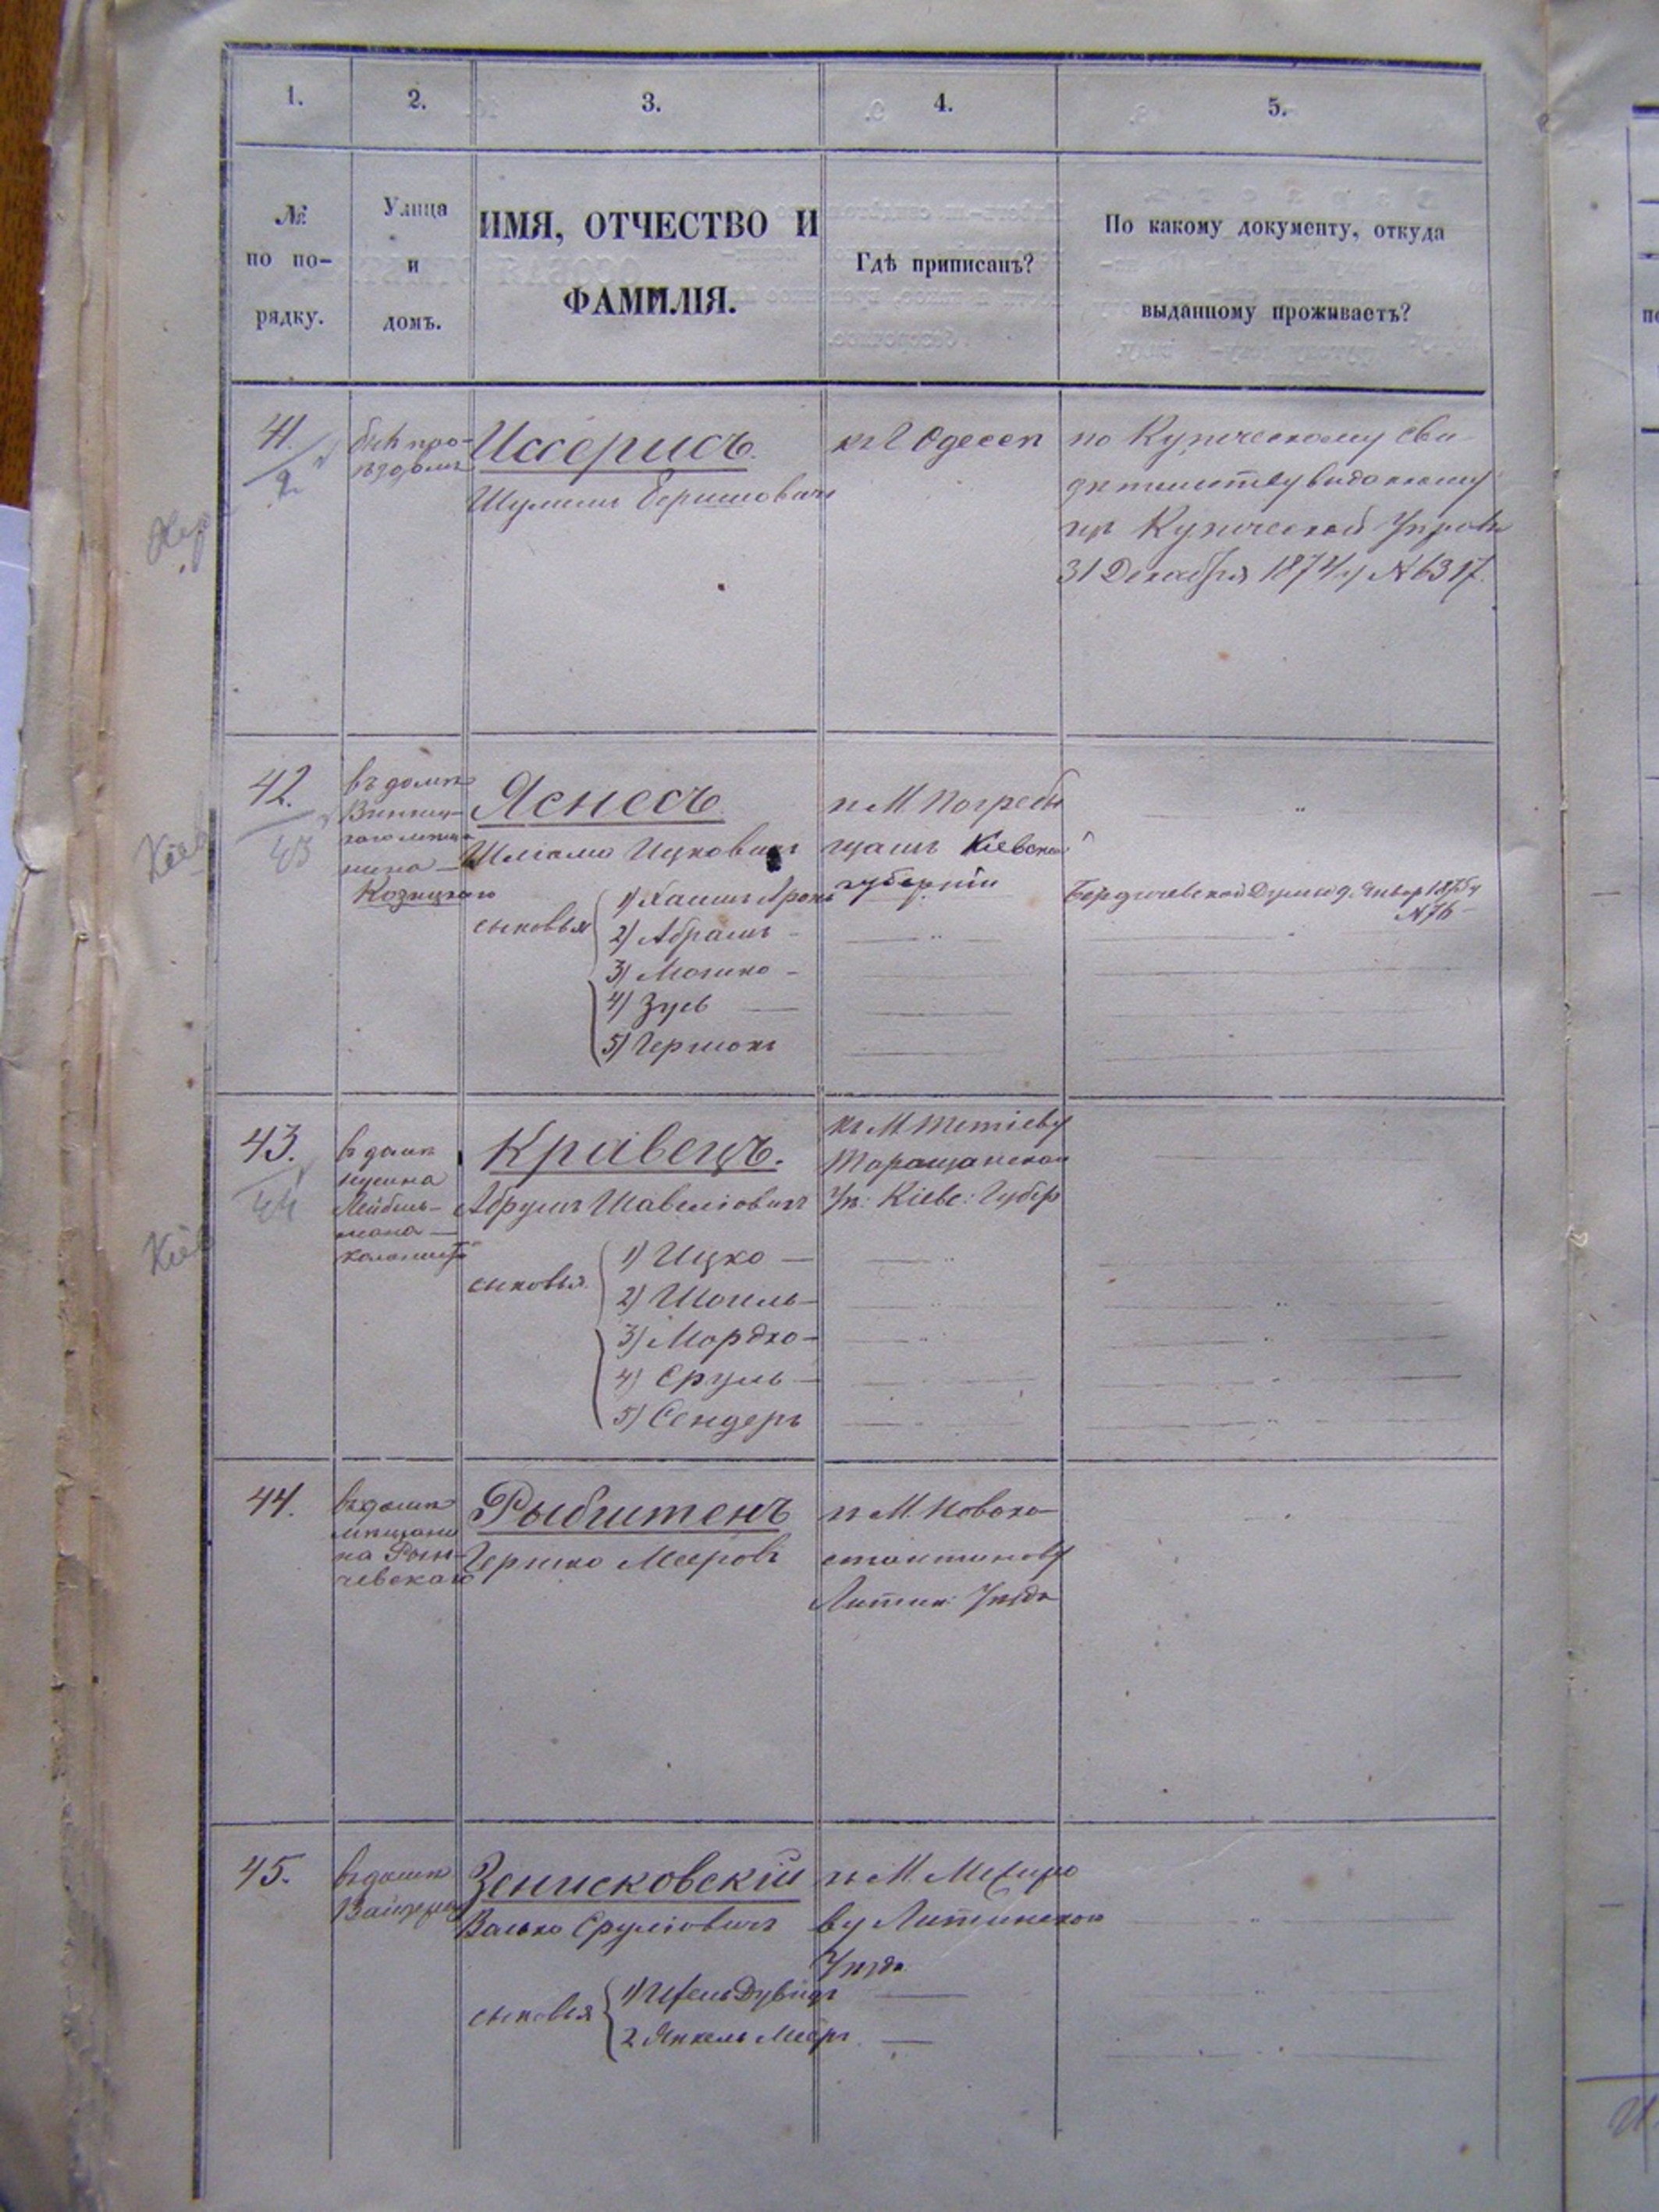 1.
2.
3.
4.
5.
№
по по-
рядку.
Улица
и
домъ.
ИМЯ, ОТЧЕСТВО И
ФАМИЛІЯ.
Гдѣ приписанъ?
По какому документу, откуда
выданному проживаетъ?
41.
2
Хер
Иссерисъ
къ Г Одессѣ
по Купеческому сви-
дѣтельству выданному
Купеческой Управы
31 Декабря 1874 г № 6317.
42.
43
Кіев
въ домѣ
Козицкаго
Яснесъ
Шліома Ицковичъ
сыновья
1) Хаимъ Аронъ
2) Абрамъ
3) Мошко
4) Зусь
5) Гершонъ
къ М. Погребы
щамъ Кіевской
губерніи
Бердичевской Думою 9. Январ 1875 г
№ 76
43.
44
Кіев
в домѣ
Лейбель-
мана
Кравецъ.
Абрумъ Шавеліовичъ
сыновья
1) Ицко
2) Шоиль
3) Мордко
4) Сруль
5) Сендеръ
къ М Тетіеву
Таращанскаго
Уѣ: Кіевс: Губер
44.
въ домѣ
мѣщани
на Рын-
чевскаго
Рыбштенъ
Гершко Меэровъ
къ М. Новоко-
стантинову
Литин: Уѣзда
45.
въ домѣ
Зенисковскій
Васько Сруліовичъ
сыновья
1) Иселъ Дувидъ
2 Янкель Меэръ
къ М. Межиро
ву Литинскаго
Уѣзда